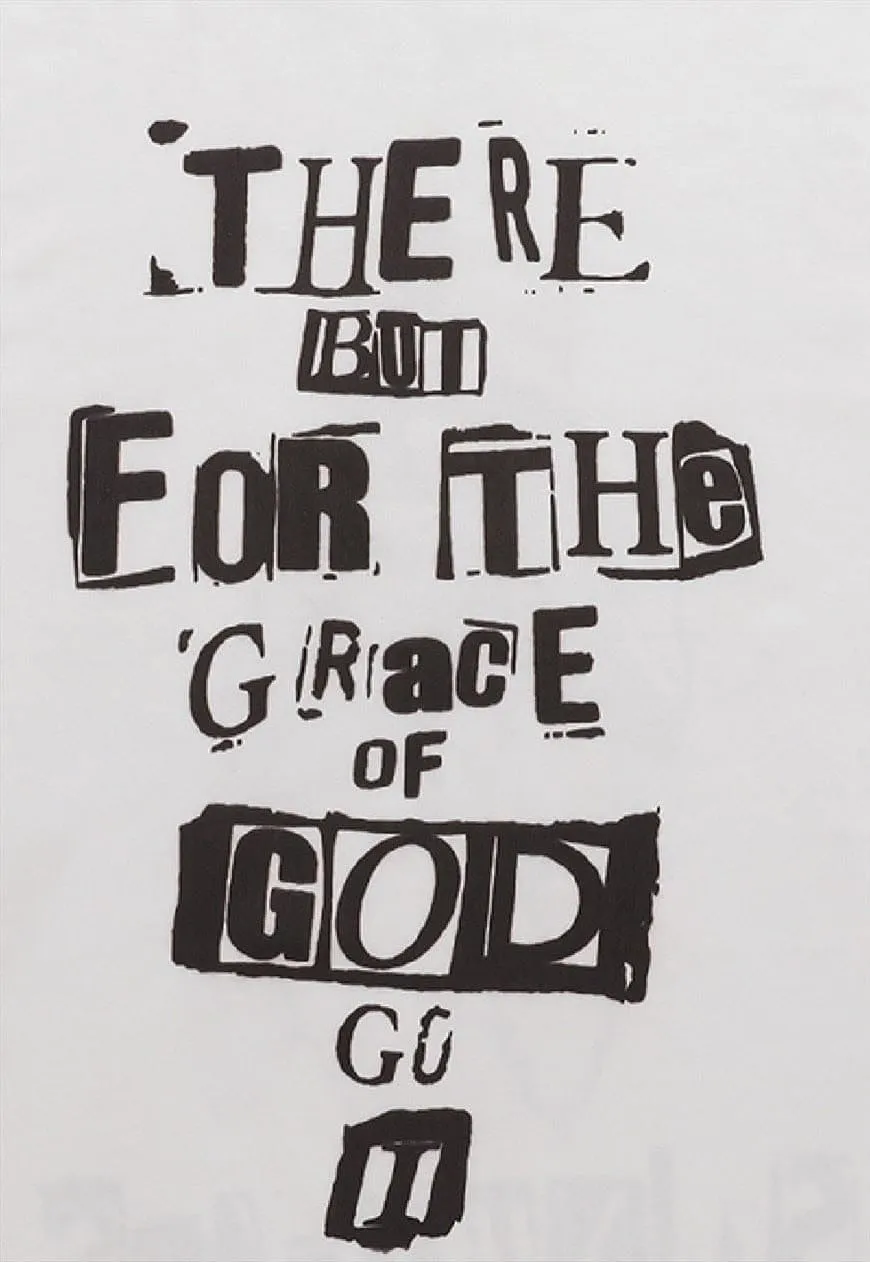 THERE
BUT
FOR THe
GRacE
OF
GOD
GO
I